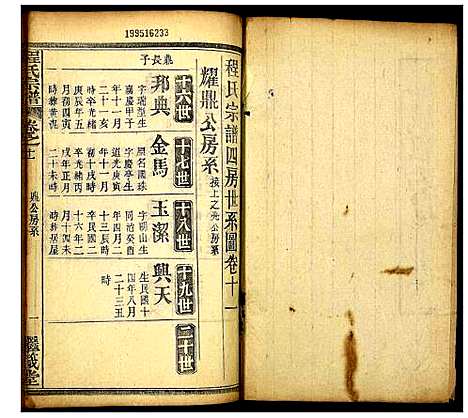 199516233
程氏宗譜四房世系圖卷十一
耀鼎公房系 按上之先公房系
十六世
十七世
十八世
十九世
二十世
鼎長子
邦典
字瑞型生
嘉慶甲子
年十一月
二十一亥
時卒光緒
庚辰年五
月初四寅
金馬
原名國珠
字慶亭生
道光庚寅
年十一月
初十戌時
卒光緒丙
戌年正月
二十未時
玉潔
字朗山生
同治癸酉
十三辰時
卒民國二
十六年二
月十四未
時葬居屋
興天
生民國十
四年八月
二十三丑
時
程氏宗譜
卷之十一
公房系
一